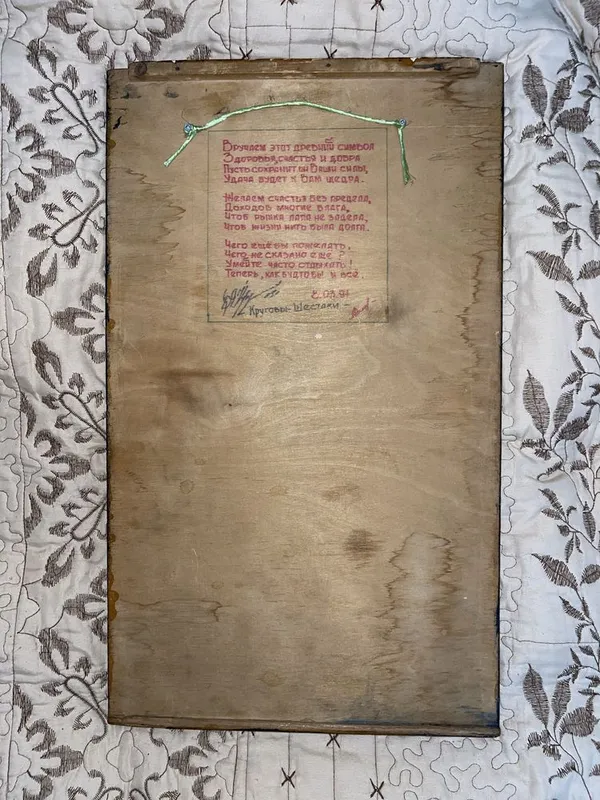 Вручаем этот древний символ
Здоровья, счастья и добра
Пусть сохранит он Ваши силы,
Удача будет к Вам щедра.
Желаем счастья без предела,
Доходов многие блага,
Чтоб рынка лапа не задела,
Чтоб жизни нить была долга.
Чего ещё бы пожелать,
Чего не сказано ещё?
Умейте чаcто отдыхать!
Теперь, как будто бы и все.
03.91
Круговы-Шестаки